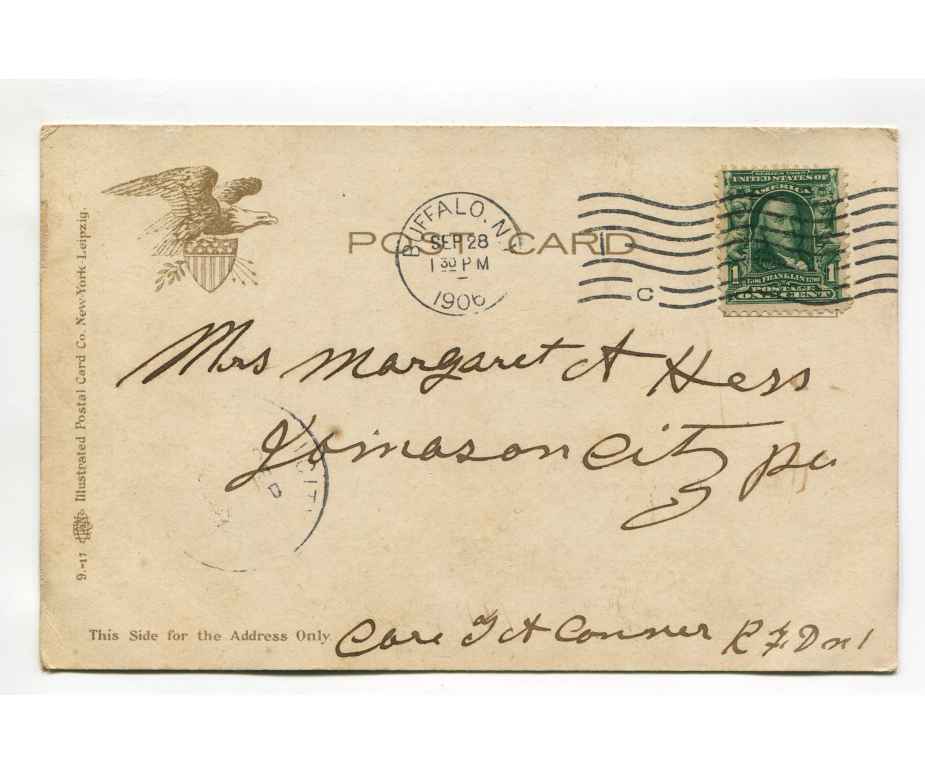 POST CARD
BUFFALO, N.Y.
SEP 28
1 30 PM
1906
C
SERIES 1902
UNITED STATES OF
AMERICA
1 FRANKLIN 1
POSTAGE
ONE CENT
Mrs Margaret A Hess
Jomason City pa
CIT
D
9.-17 Illustrated Postal Card Co. New-York-Leipzig.
This Side for the Address Only.
Care J A Conner R F D n 1